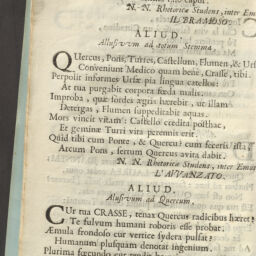 N. N. Rhetoricæ Studens, inter Ema
IL BRAMOSO.
ALIUD.
Allusivum ad totum Stemma.
QUercus, Pons, Turres, Castellum, Flumen, & Urs
Conveniunt Medico quam bene, Crasse, tibi.
Perpolit informes Ursæ pia lingua catellos:
At tua purgabit corpora fœda malis.
Improba, quæ hærdes ægris hærebit, ut illam
Detergas, Flumen suppeditabit aquas.
Mors vincit vitam: Castello credita posthac,
Et geminæ Turri vita peremni erit.
Quid tibi cum Ponte, & Quercu? cum feceris ista;
Arcum Pons, sertum Quercus avita dabit.
N. N. Rhetoricæ Studens, inter Emat
L'AVVANZATO.
ALIUD.
Allusivum ad Quercum.
CUr tua CRASSE, tenax Quercus radicibus hæret?
Te fulvum humani roboris esse probat.
Æmula frondoso cur vertice sydera pulsat?
Humanum plusquam denotat ingenium.
Plurima fœcundo cur